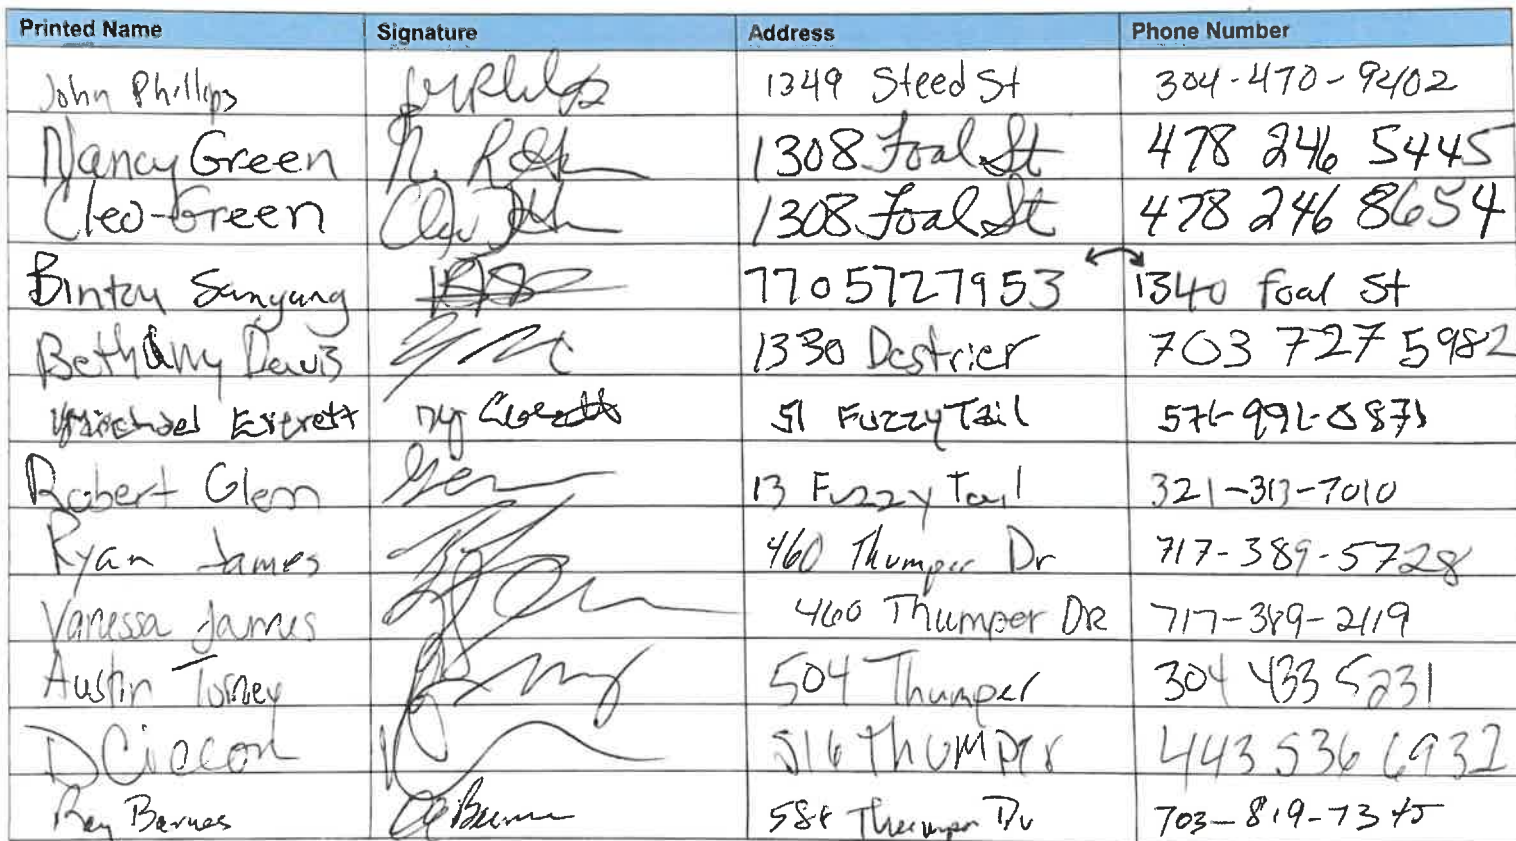 Printed Name Signature Address Phone Number
John Phillips 1349 Steed St 304-470-9402
Nancy Green 1308 Foal St 478 246 5445
Cleo Green 1308 Foal St 478 246 8654
Bintou Sanyang 7705727953 1340 Foal St
Bethany Davis 1330 Destrier 703 727 5982
Michael Everett 51 Fuzzy Tail
Robert Glenn 13 Fuzzy Tail 321-313-7010
Ryan James 460 Thumper Dr 717-389-5728
Vanessa James 460 Thumper DR 717-389-2119
Austin 504 Thumper 304 433 5231
516 Thumper 443 536 6932
Ray Barnes Thumper Dr 703-819-7345